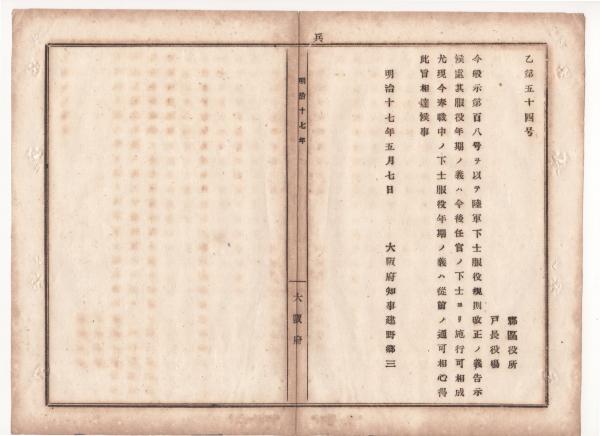 兵
乙第五十四号
郡區役所
戸長役場
今般示第百八号ヲ以テ陸軍下士服役規則改正ノ義告示
候處其服役年期ノ義ハ今後任官ノ下士ヨリ施行可相成
尤現今奉職中ノ下士服役年期ノ義ハ從前ノ通可相心得
此旨相達候事
明治十七年五月七日
大阪府知事建野郷三
明治十七年
大阪府